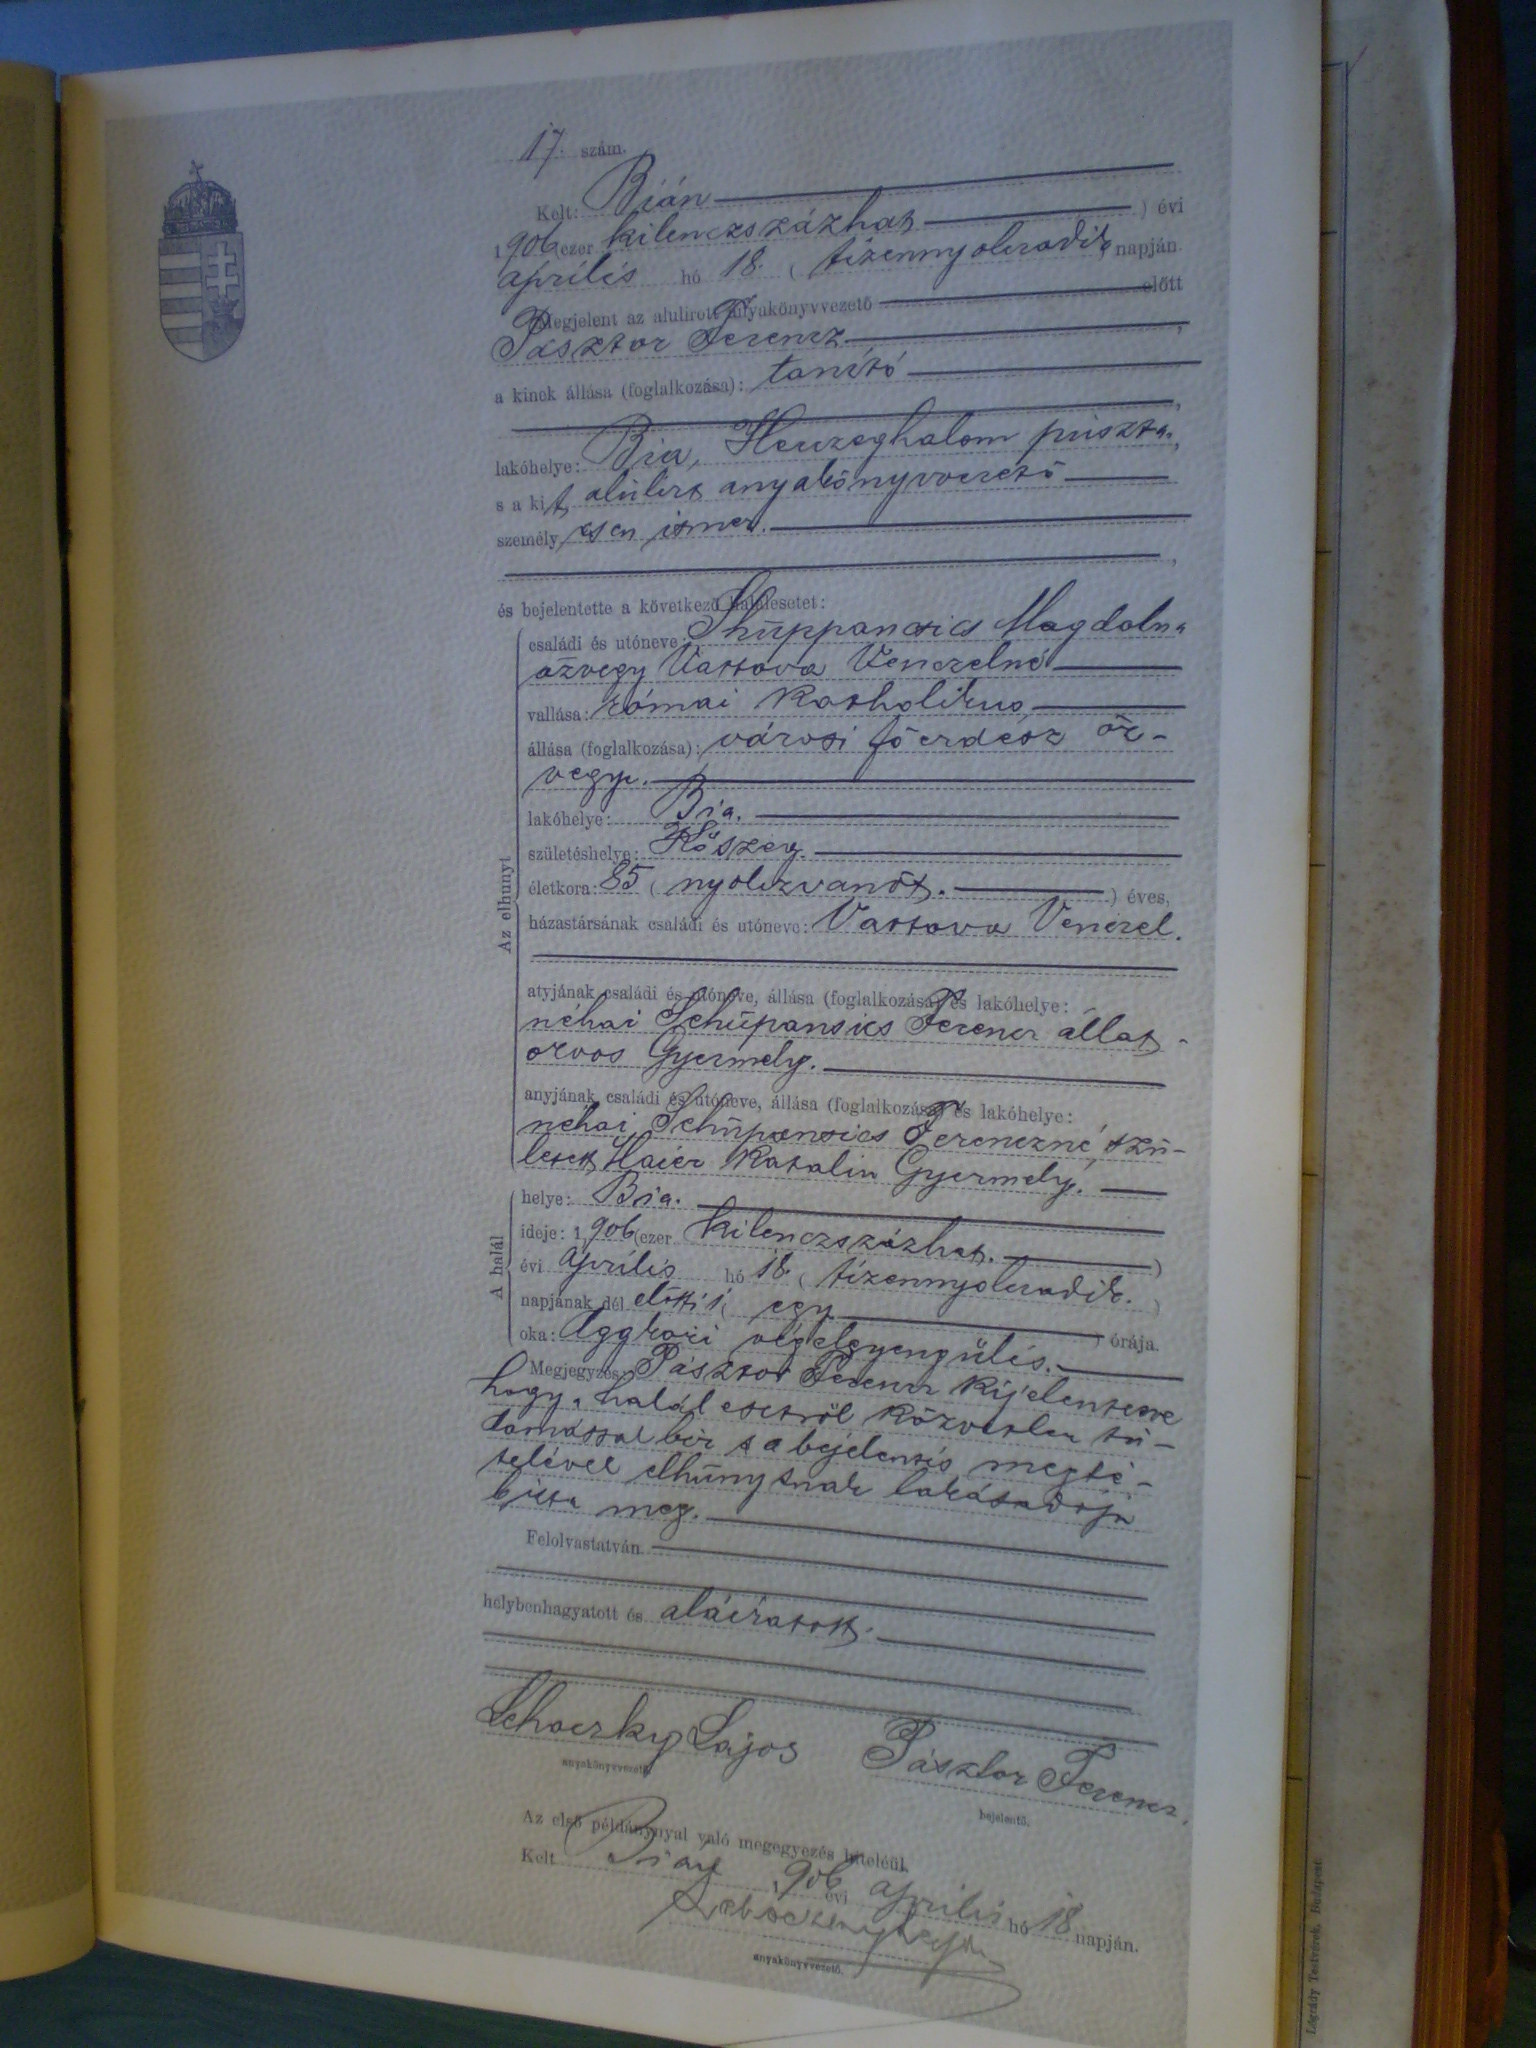 17. szám.
Kelt: Bián
1906 (ezer kilenczszázhat ) évi
április hó 18. ( tizennyolczadik napján
Megjelent az alulirott anyakönyvvezető előtt
Pásztor Ferencz,
a kinek állása (foglalkozása): tanító
lakóhelye: Bia, Herczeghalom puszta,
s a kit alulirt anyakönyvvezető
személyesen ismer.
és bejelentette a következő halálesetet:
Az elhunyt
családi és utóneve: Shuppancsics Magdolna
özvegy Vattova Venczelné
vallása: római katholikus
állása (foglalkozása): városi főerdész öz-
vegye.
lakóhelye: Bia.
születéshelye: Kőszeg.
életkora: 85 ( nyolczvanöt. ) éves,
házastársának családi és utóneve: Vattova Venczel.
atyjának családi és utóneve, állása (foglalkozása) és lakóhelye:
néhai Schupansics Ferencz állat-
orvos Gyermely.
anyjának családi és utóneve, állása (foglalkozása) és lakóhelye:
néhai Schupansics Ferenczné, szü-
letett Haier Katalin Gyermely.
A halál
helye: Bia.
ideje: 1906 (ezer kilenczszázhat. )
évi április hó 18. ( tizennyolczadik. )
napjának dél előtti 1 ( egy ) órája.
oka: Aggkori végelgyengülés.
Megjegyzés: Pásztor Ferencz kijelentette
hogy a halál esetről közvetlen tu-
domással bir s a bejelentés megté-
telével elhunytnak lakásadója
bizta meg.
Felolvastatván
helybenhagyatott és aláíratott.
Schoczky Lajos Pásztor Ferencz
anyakönyvvezető. bejelentő.
Az első példánynyal való megegyezés hiteléül.
Kelt Bián 1906 évi április hó 18 napján.
anyakönyvvezető.
Légrády Testvérek, Budapest